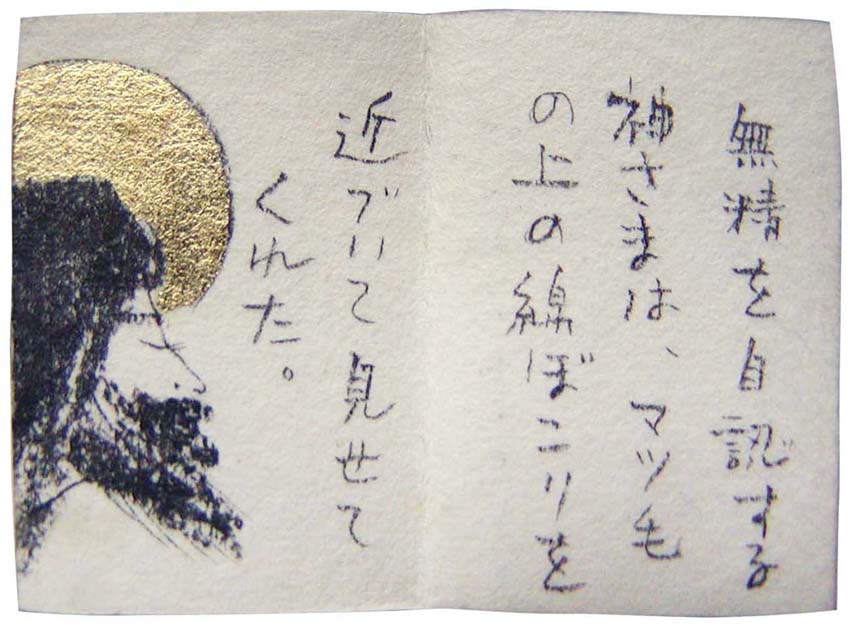 無精を自認する
神さまは、マツ毛
の上の綿ぼこりを
近づいて見せて
くれた。